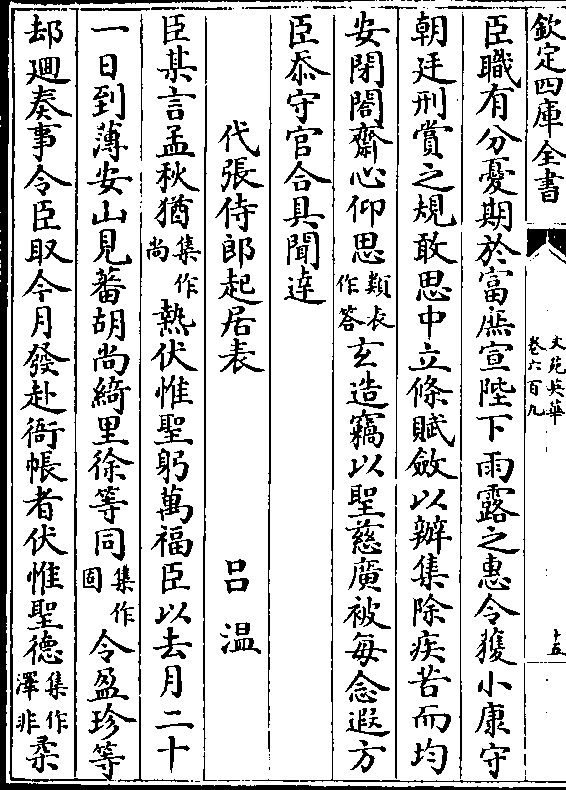 欽定四庫全書
文苑英華
卷六百九
十五
臣職有分憂期於富庶宣陛下雨露之惠令獲小康守
朝廷刑賞之規敢思中立條賦斂以辦集除疾苦而均
安閉閤齋心仰思類表作答玄造竊以聖慈廣被每念遐方
臣忝守官合具聞達
代張侍郎起居表 呂溫
臣某言孟秋猶集作尚熱伏惟聖躬萬福臣以去月二十
一日到薄安山見蕃胡尚綺里徐等同集作固令盈珍等
却迴奏事令臣取今月發赴衙帳者伏惟聖德集作澤非柔